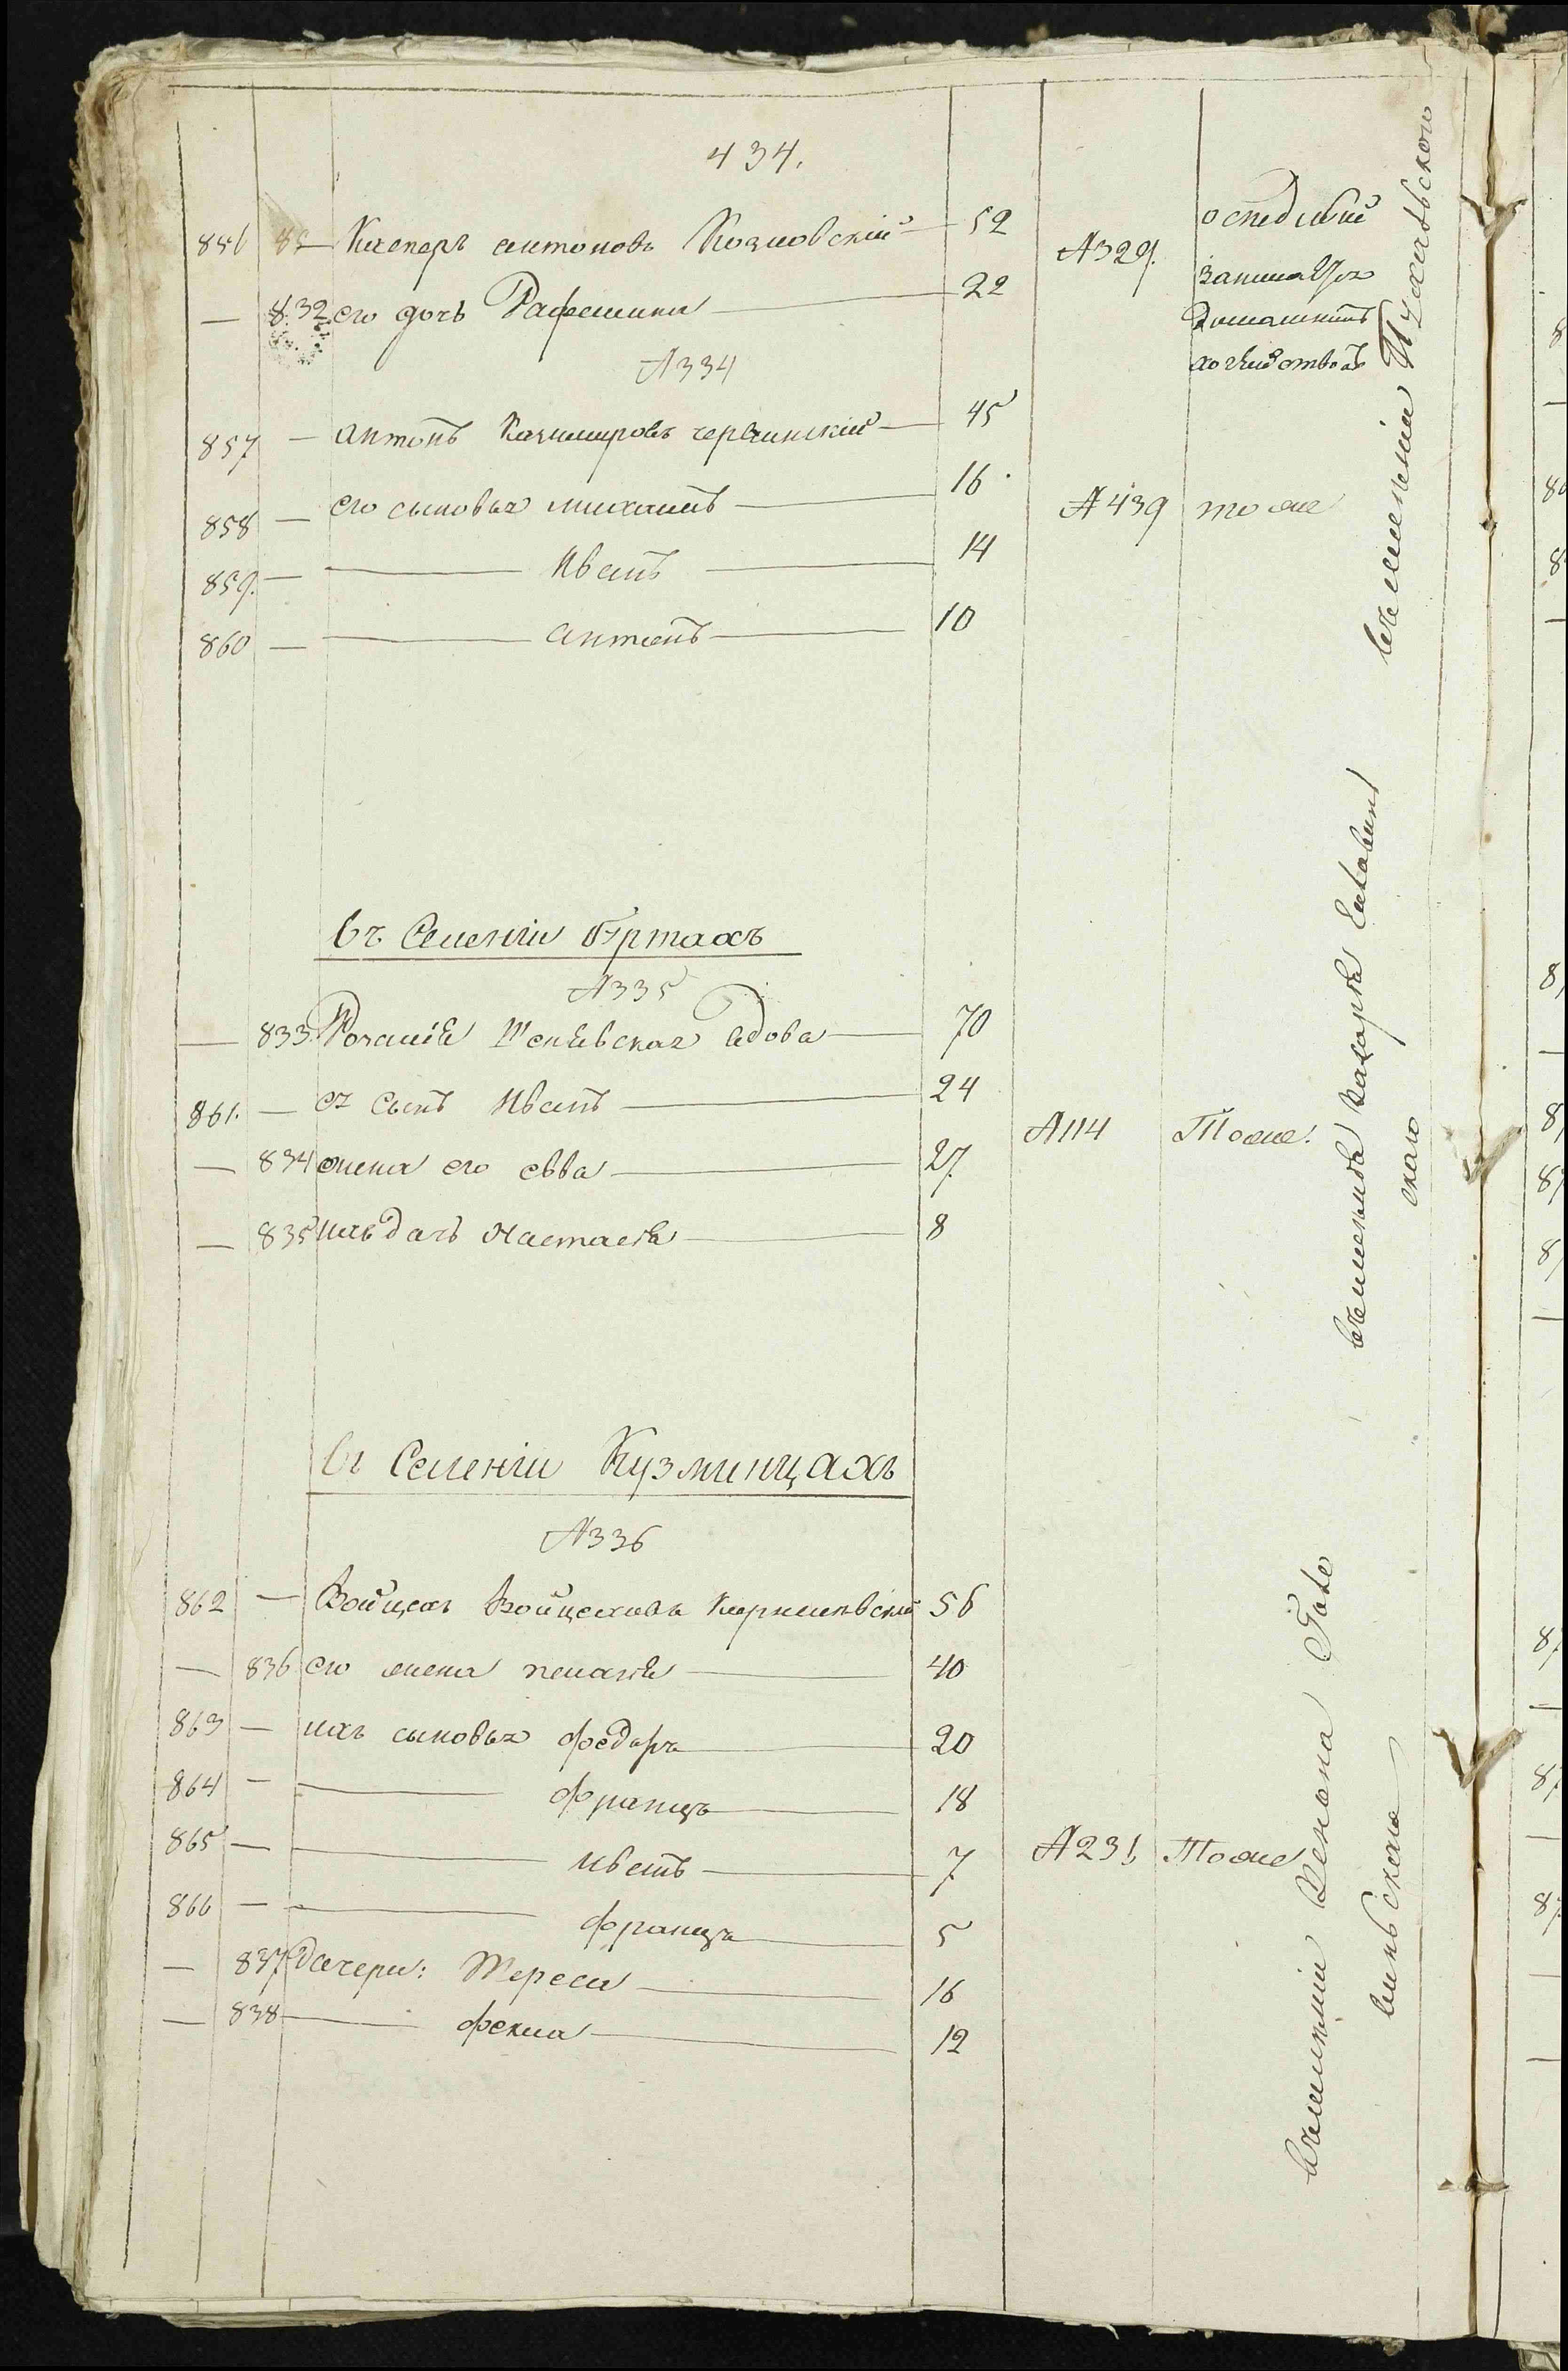 434.
856 — Каспер Антоновъ Козловскій — 52 №329. оседлый
— 832 его дочь — 22 занимаются
домашнимъ
хозяйствомъ
№334
857 — Антонъ Казимировъ Червинскій — 45
858 — его сыновья Михаилъ — 16 №439 тоже
859 — Иванъ — 14
860 — Антонъ — 10
въ имении
Въ Селеніи Уртахъ
№335
— 833 вдова — 70
861. — ея сынъ Иванъ — 24 №114 Тоже.
— 834 жена его Евва — 27
— 835 ихъ дочь Настасія — 8
въ имении
скаго
Въ Селеніи Кузминцахъ
№336
862 — Войцехъ Войцеховъ 56
— 836 его жена Пелагія — 40
863 — ихъ сыновья Федоръ — 20
864 — Францъ — 18
865 — Иванъ — 7 №231 Тоже
866 — Францъ — 5
— 837 дочери: Тереса — 16
— 838 Фекла — 12
въ имении